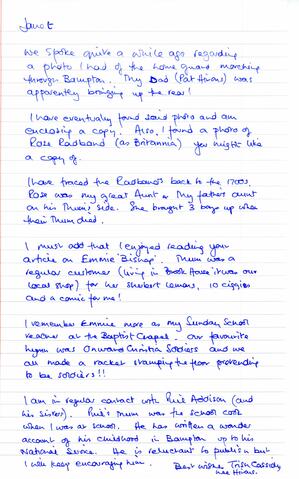 Janet
We spoke quite a while ago regarding
a photo I had of the home guard marching
through Bampton. My Dad (Pat Hinas) was
apparently bringing up the rear!
I have eventually found said photo and am
enclosing a copy. Also, I found a photo of
Rose Radband (as Britannia) you might like
a copy of.
I have traced the Radbands back to the 1700s.
Rose was my great Aunt & my father's aunt
on his Mum's side. She brought 3 boys up when
their Mum died.
I must add that I enjoyed reading your
article on Emmie 'Bishop'. Mum was a
regular customer (living in Brook House it was our
local shop) for her sherbert lemons, 10 ciggies
and a comic for me!
I remember Emmie more as my Sunday School
teacher at the Baptist Chapel. Our favourite
hymn was Onward Christian Soldiers and we
all made a racket stamping the floor pretending
to be soldiers!!
I am in regular contact with Phil Addison (and
his sister). Phil's Mum was the school cook
when I was at school. He has written a wonder
account of his childhood in Bampton up to his
National Service. He is reluctant to publish but
I will keep encouraging him. Best wishes Trish Cassidy
nee